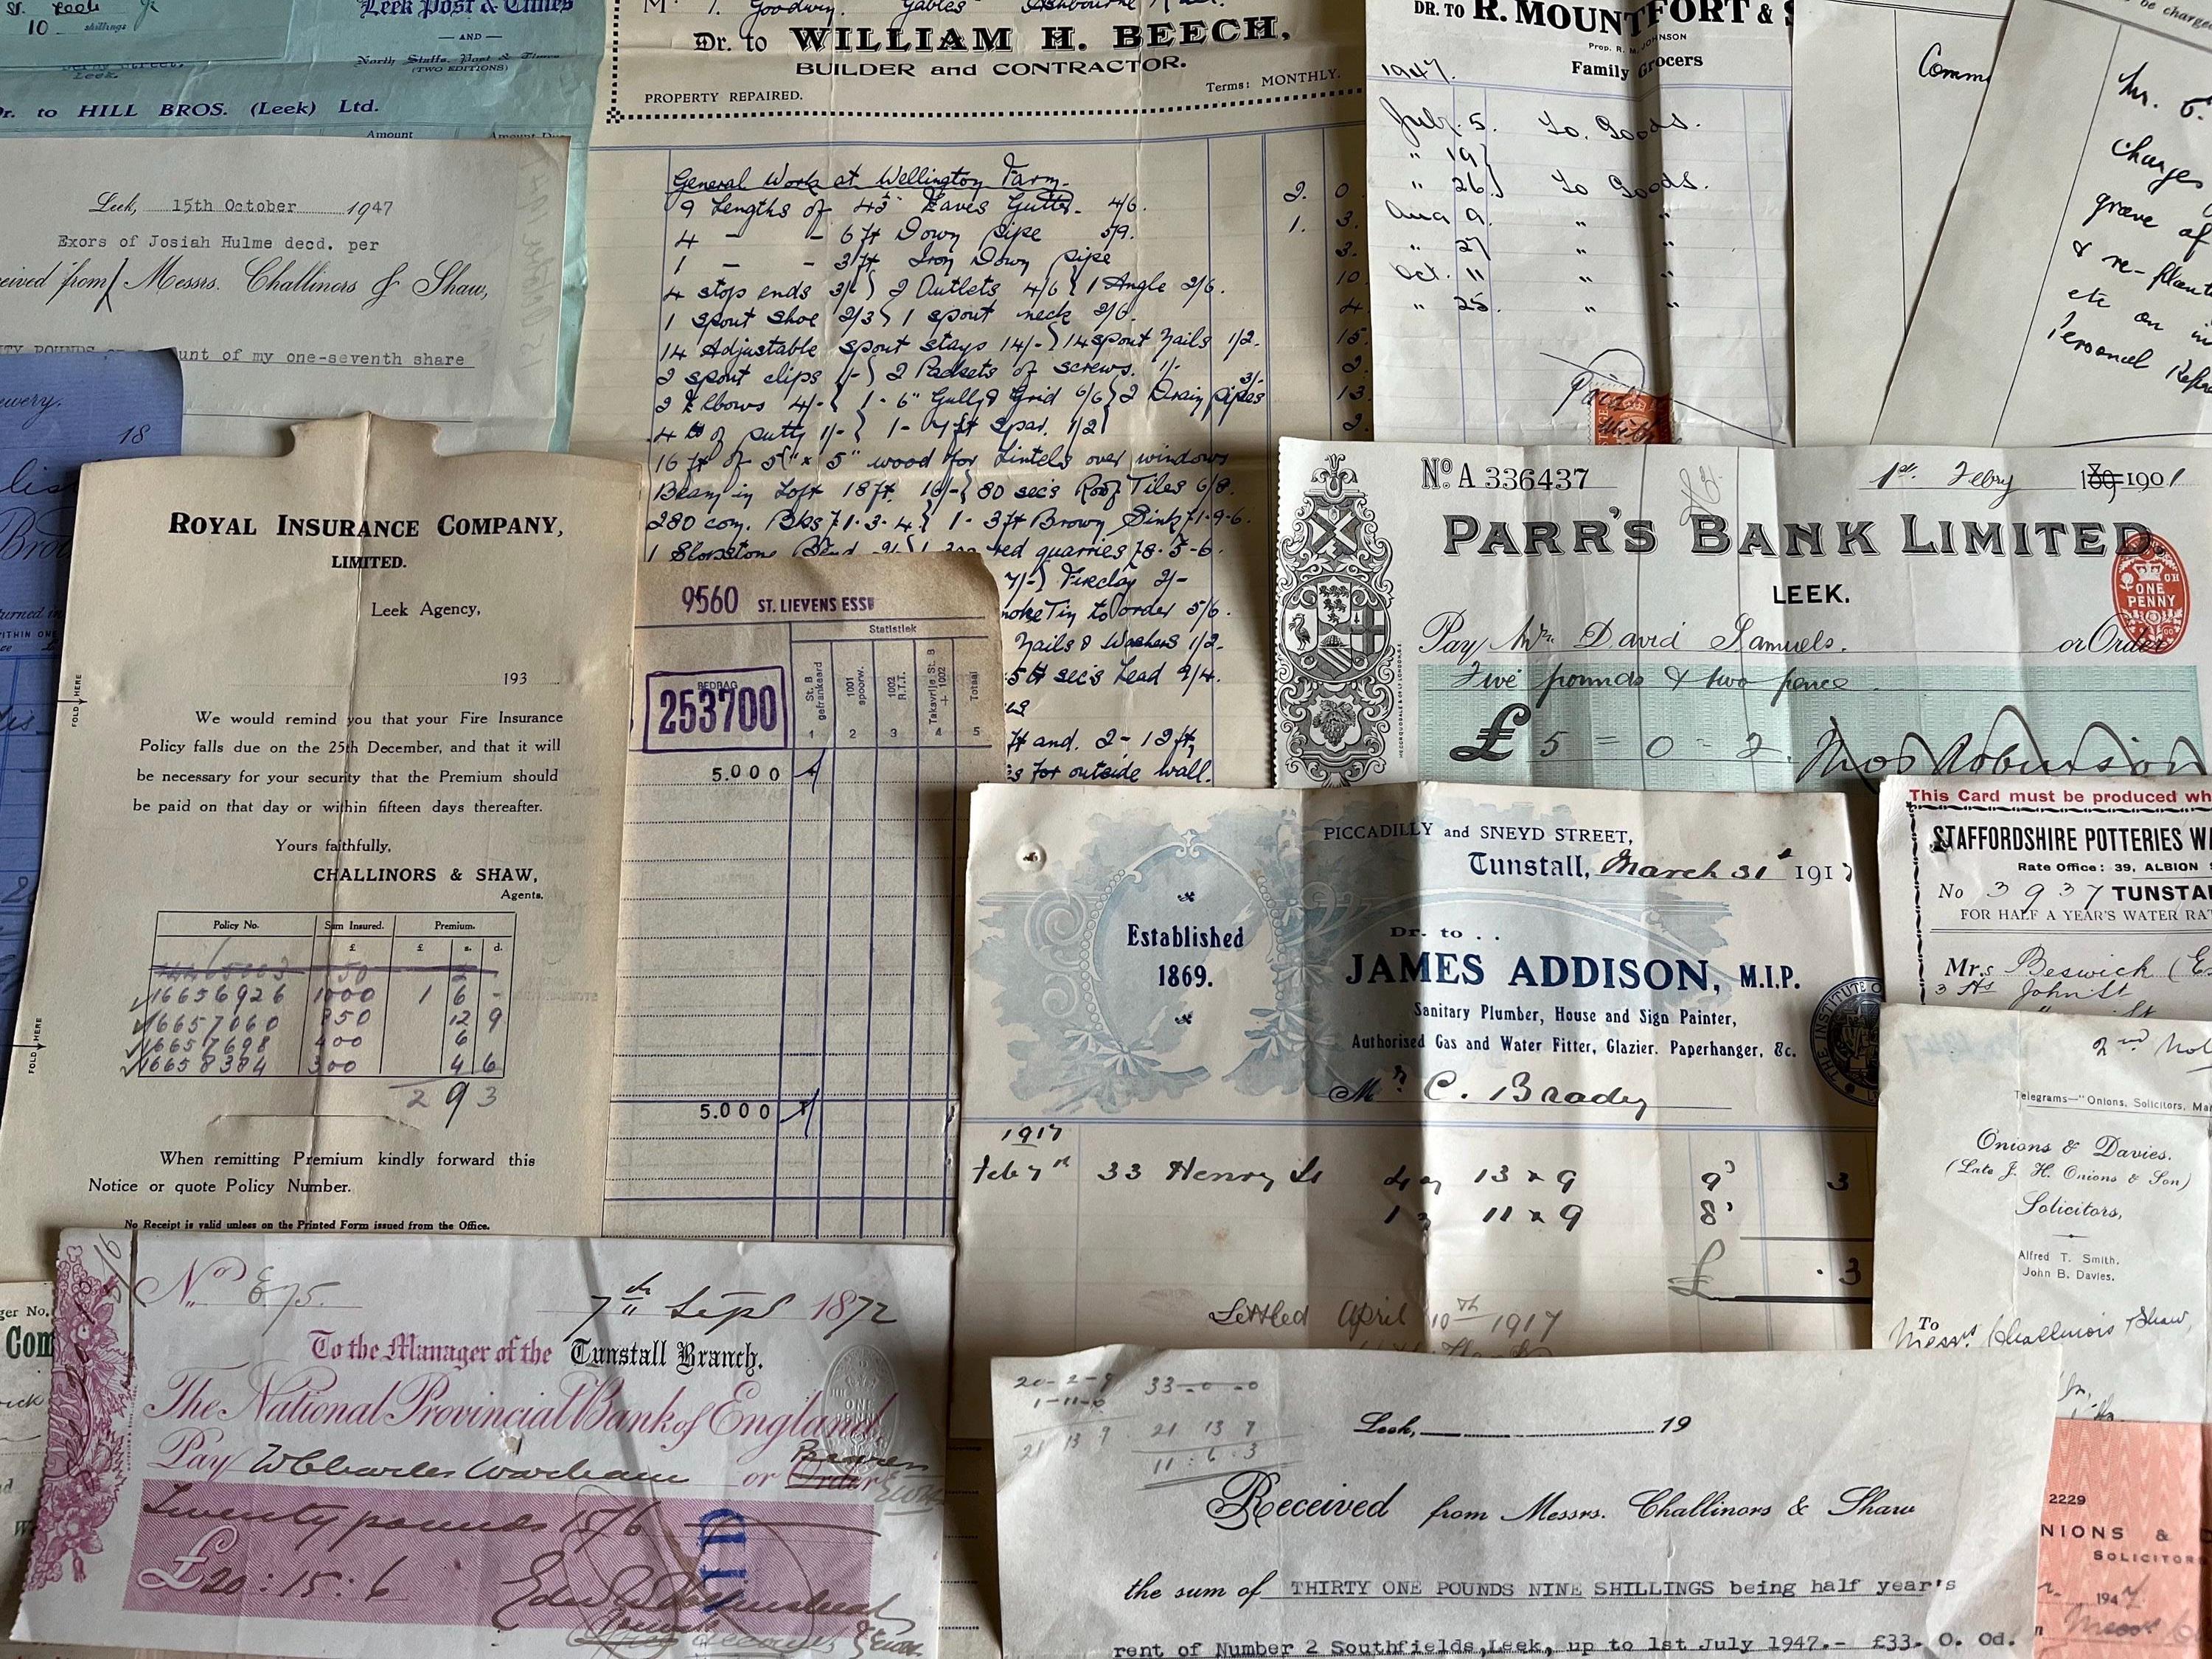 St. Leek
10 shillings
Leek Post & Times
— AND —
North Staffs. Post & Times
(TWO EDITIONS)
Leek.
Dr. to HILL BROS. (Leek) Ltd.
Amount
Leek, 15th October 1947
Exors of Josiah Hulme decd. per
Messrs. Challinors & Shaw,
unt of my one-seventh share
18
ROYAL INSURANCE COMPANY,
LIMITED.
Leek Agency,
193
FOLD HERE
We would remind you that your Fire Insurance
Policy falls due on the 25th December, and that it will
be necessary for your security that the Premium should
be paid on that day or within fifteen days thereafter.
Yours faithfully,
CHALLINORS & SHAW,
Agents.
Policy No. Sum Insured. Premium.
£ £ s. d.
16656926 1000 1 6 -
16657060 850 12 9
16657698 400 6
16658384 300 4 6
2 9 3
FOLD HERE
When remitting Premium kindly forward this
Notice or quote Policy Number.
No Receipt is valid unless on the Printed Form issued from the Office.
M T. Goodwin. Gables Ashbourne
Dr. to WILLIAM H. BEECH,
BUILDER and CONTRACTOR.
PROPERTY REPAIRED.
Terms: MONTHLY.
General Work at Wellington Farm.
9 Lengths of Eaves Gutter. 4/6. 2. 0
4 - - 6ft Down pipe 5/9. 1. 3.
1 - - 3ft Iron Down pipe 3.
4 stop ends 3/- 2 Outlets 4/6 1 Angle 2/6. 10
1 spout shoe 2/3 1 spout neck 2/6. 4
14 Adjustable spout stays 14/- 14 spout Nails 1/2. 15.
2 spout clips 1/- 2 Packets of screws. 1/- 2.
2 Elbows 4/- 1 - 6" Gully & Grid 6/6 2 Drain pipes 3/- 13
4 lb of putty 1/- 1 - 7ft Spar. 1/2 2.
16 ft of 5" x 5" wood for Lintels over windows
Beam in Loft 18ft. 16/- 80 sec's Roof Tiles 6/8.
280 com. Bks £1.3.4 1 - 3ft Brown Sink £1.9.6.
red quarries £8.5.6.
Fireclay 2/-
Tin to order 5/6.
Nails & Washers 1/2.
sec's Lead 9/4.
ft and. 2 - 12 ft,
for outside wall.
9560 ST. LIEVENS ESSE
Statistiek
BEDRAG
253700
St. B gefrankeerd
1001 spoorw.
1002 R.T.T.
Takavrije St. B + 1002
Totaal
1 2 3 4 5
5.000
5.000
DR. TO R. MOUNTFORT &
Prop. R. M. JOHNSON
Family Grocers
1947.
July. 5. To. Goods.
" 19
" 26. To Goods.
Aug 9. "
" 27 "
Oct. 11 "
" 25. "
Paid
with
Comm
be charged
Mr.
charges
grave of
& re-plant
etc on
Personal
No. A 336437
1st. Febry 1901
PARR'S BANK LIMITED.
LEEK.
ONE PENNY
Pay Mr. David Samuels. or Order
Five pounds & two pence
£ 5 = 0 = 2.
Thos Robinson
PICCADILLY and SNEYD STREET,
Tunstall, March 31st 1917
Established
1869.
Dr. to . .
JAMES ADDISON, M.I.P.
Sanitary Plumber, House and Sign Painter,
Authorised Gas and Water Fitter, Glazier. Paperhanger, &c.
THE INSTITUTE O
Mr C. Brady
1917
Feb 7th 33 Henry St 4 13 x 9 9' 3
1 11 x 9 8'
£ . 3
Settled April 10th 1917
This Card must be produced wh
STAFFORDSHIRE POTTERIES WA
Rate Office: 39, ALBION
No 3937 TUNSTA
FOR HALF A YEAR'S WATER RAT
Mrs Beswick
John St
2nd
Telegrams—"Onions, Solicitors, Ma
Onions & Davies.
(Late J. H. Onions & Son)
Solicitors,
Alfred T. Smith,
John B. Davies.
To
Messrs Challinors & Shaw,
No E75.
7th Sept 1872
To the Manager of the Tunstall Branch.
The National Provincial Bank of England,
Pay W Charles Wareham or Order
Bearer
Twenty pounds 15/6
£20:15:6
20-2-9 33-0-0
1-11-0
21 13 9 21 13 9
11:6:3
Leek, 19
Received from Messrs. Challinors & Shaw
the sum of THIRTY ONE POUNDS NINE SHILLINGS being half year's
rent of Number 2 Southfields, Leek, up to 1st July 1947.- £33. 0. 0d.
2229
NIONS &
SOLICITORS
1947